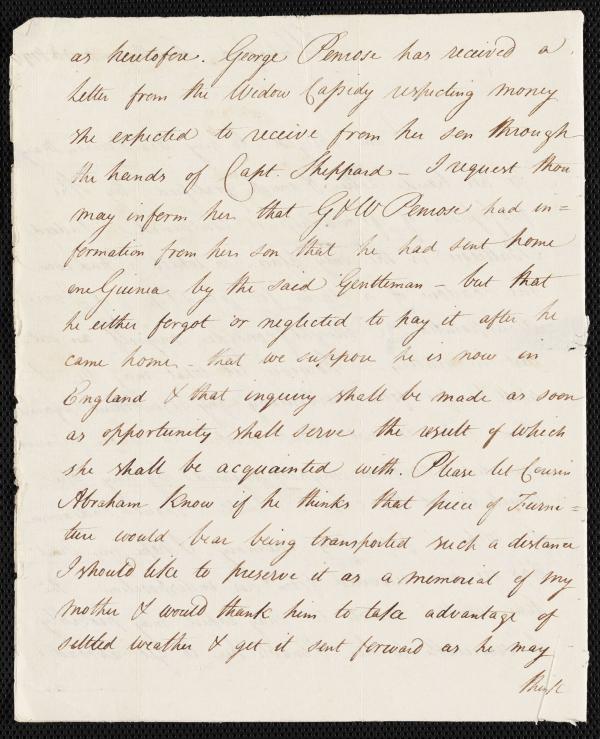 as heretofore. George Penrose has received a
Letter from the Widow Cassidy respecting money
she expected to receive from her son through
the hands of Capt. Sheppard – I request thou
may inform her that G&W Penrose had in=
formation from her son that he had sent home
one Guinea by the said Gentleman – but that
he either forgot or neglected to pay it after he
came home – that we suppose he is now in
England & that inquiry shall be made as soon
as opportunity shall serve the result of which
she shall be acquainted with. Please let Cousin
Abraham know if he thinks that piece of Furni=
ture would bear being transported such a distance
I should like to preserve it as a memorial of my
mother & would thank him to take advantage of
settled weather & get it sent forward as he may
think